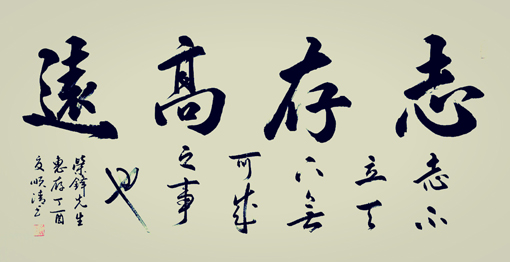 志存高遠
志不
立天
下無
可成
之事
也
鋒先生
惠存丁酉
清